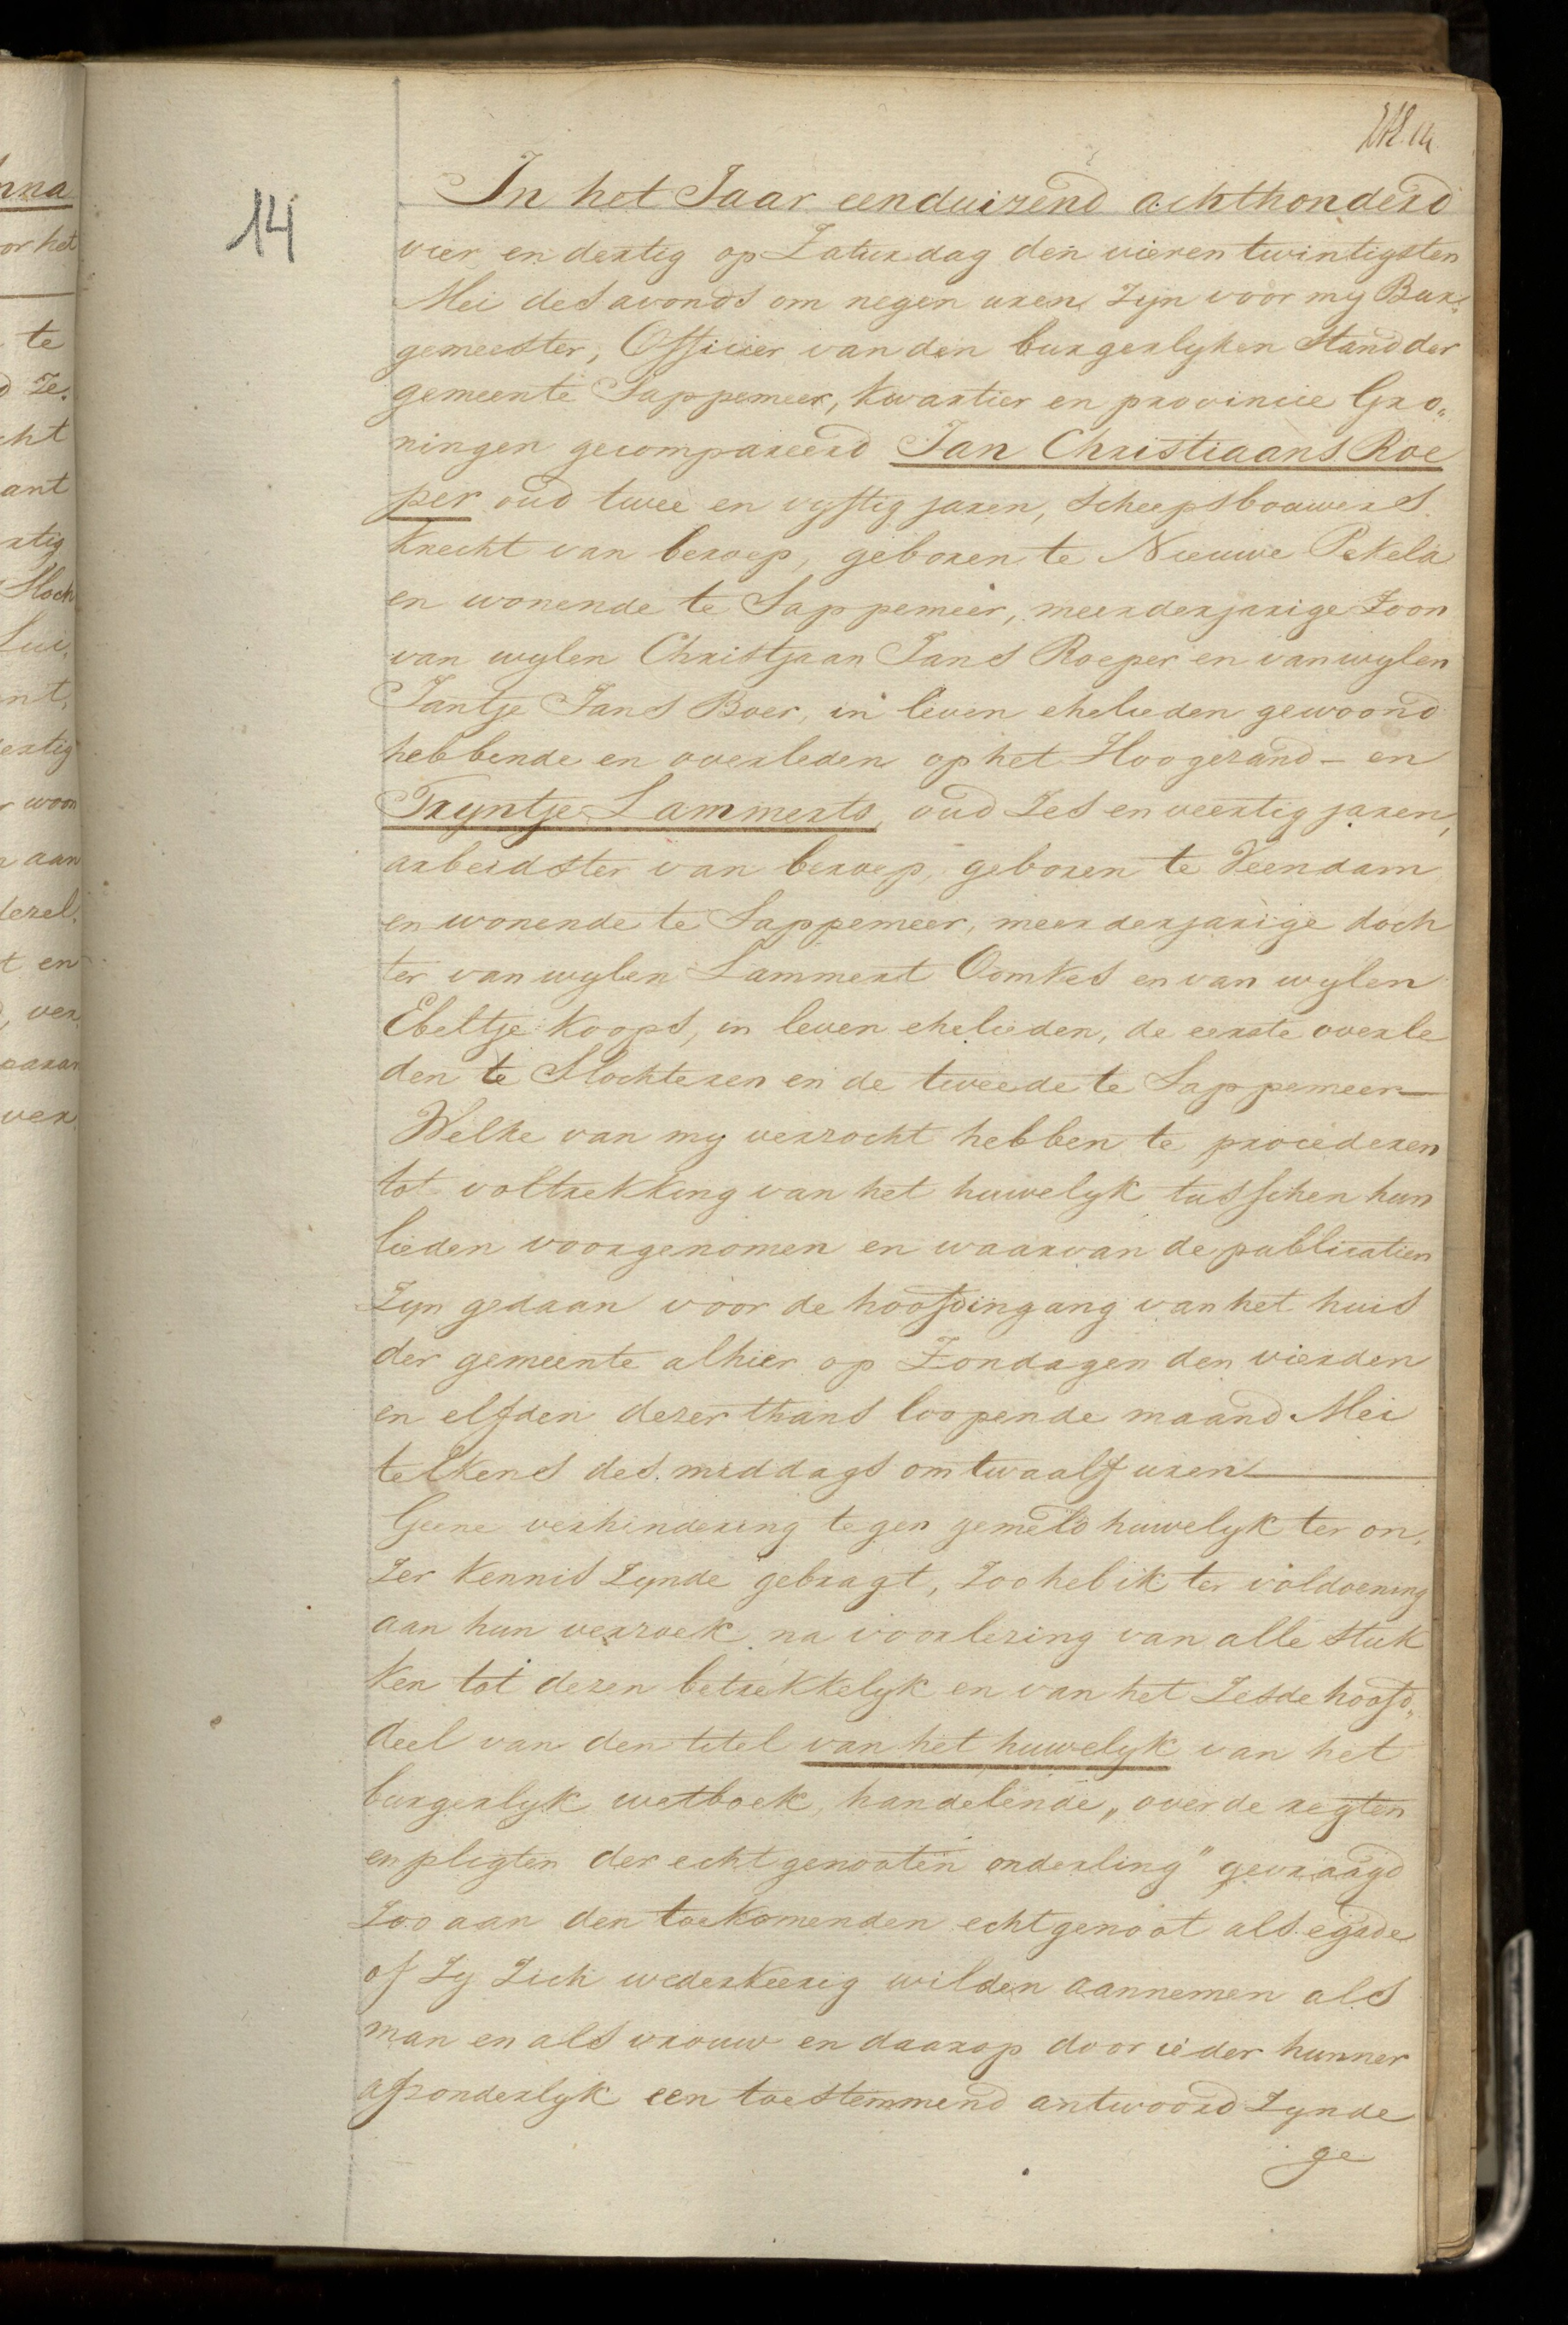 14
In het Jaar eenduizend achthonderd
vier en dertig op Zaturdag den vieren twintigsten
Mei des avonds om negen uren zijn voor my Bur„
gemeester, Officier van den burgerlyken Stand der
gemeente Sappemeer, Kwartier en provincie Gro„
ningen gecompareerd Jan Christiaans Roe
per oud twee en vyftig jaren, scheepsbouwers
Knecht van beroep, geboren te Nieuwe Pekela
en wonende te Sappemeer, meerderjarige Zoon
van wylen Christjaan Jans Roeper en van wylen
Jantje Jans Boer, in leven ehelieden gewoond
hebbende en overleden op het Hoogezand – en
Tryntje Lammerts, oud Zes en veertig jaren,
arbeidster van beroep, geboren te Veendam
en wonende te Sappemeer, meerderjarige doch
ter van wylen Lammert Oomkes en van wylen
Ebeltje Koops, in leven ehelieden, de eerste overle
den te Slochteren en de tweede te Sappemeer —
Welke van my verzocht hebben te procederen
tot voltrekking van het huwelyk tusschen hun
lieden voorgenomen en waarvan de publicatien
Zyn gedaan voor de hoofdingang van het huis
der gemeente alhier op Zondagen den vierden
en elfden dezer thans loopende maand Mei
telkens des middags om twaalf uren —
Geene verhindering tegen gemeld huwelyk ter on„
zer kennis zynde gebragt, Zoo heb ik ter voldoening
aan hun verzoek na voorlezing van alle stuk
ken tot dezen betrekkelyk en van het Zesde hoofd„
deel van den titel van het huwelyk van het
burgerlyk wetboek, handelende „over de regten
en pligten der echtgenooten onderling" gevraagd
Zoo aan den toekomenden echtgenoot als egade
of Zy Zich wederkeerig wilden aannemen als
man en als vrouw en daarop door ieder hunner
afzonderlyk een toestemmend antwoord Zynde
ge
nna
or het
te
cht
ant
rtig
Sloch
ent,
ertig
r woon
aan
dezel
t en
ver
ver